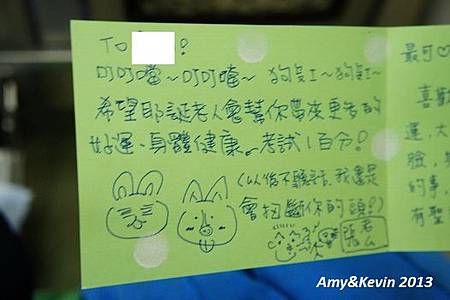 To :
叮叮噹~叮叮噹~ 狗
希望耶誕老人會幫你帶來更多的
好運、身體健康、考試100分!
(以後不聽話,我還是
會扭斷你的頭!)
最可♡
喜歡
運,大
臉,
的事,
有聖
Amy&Kevin 2013